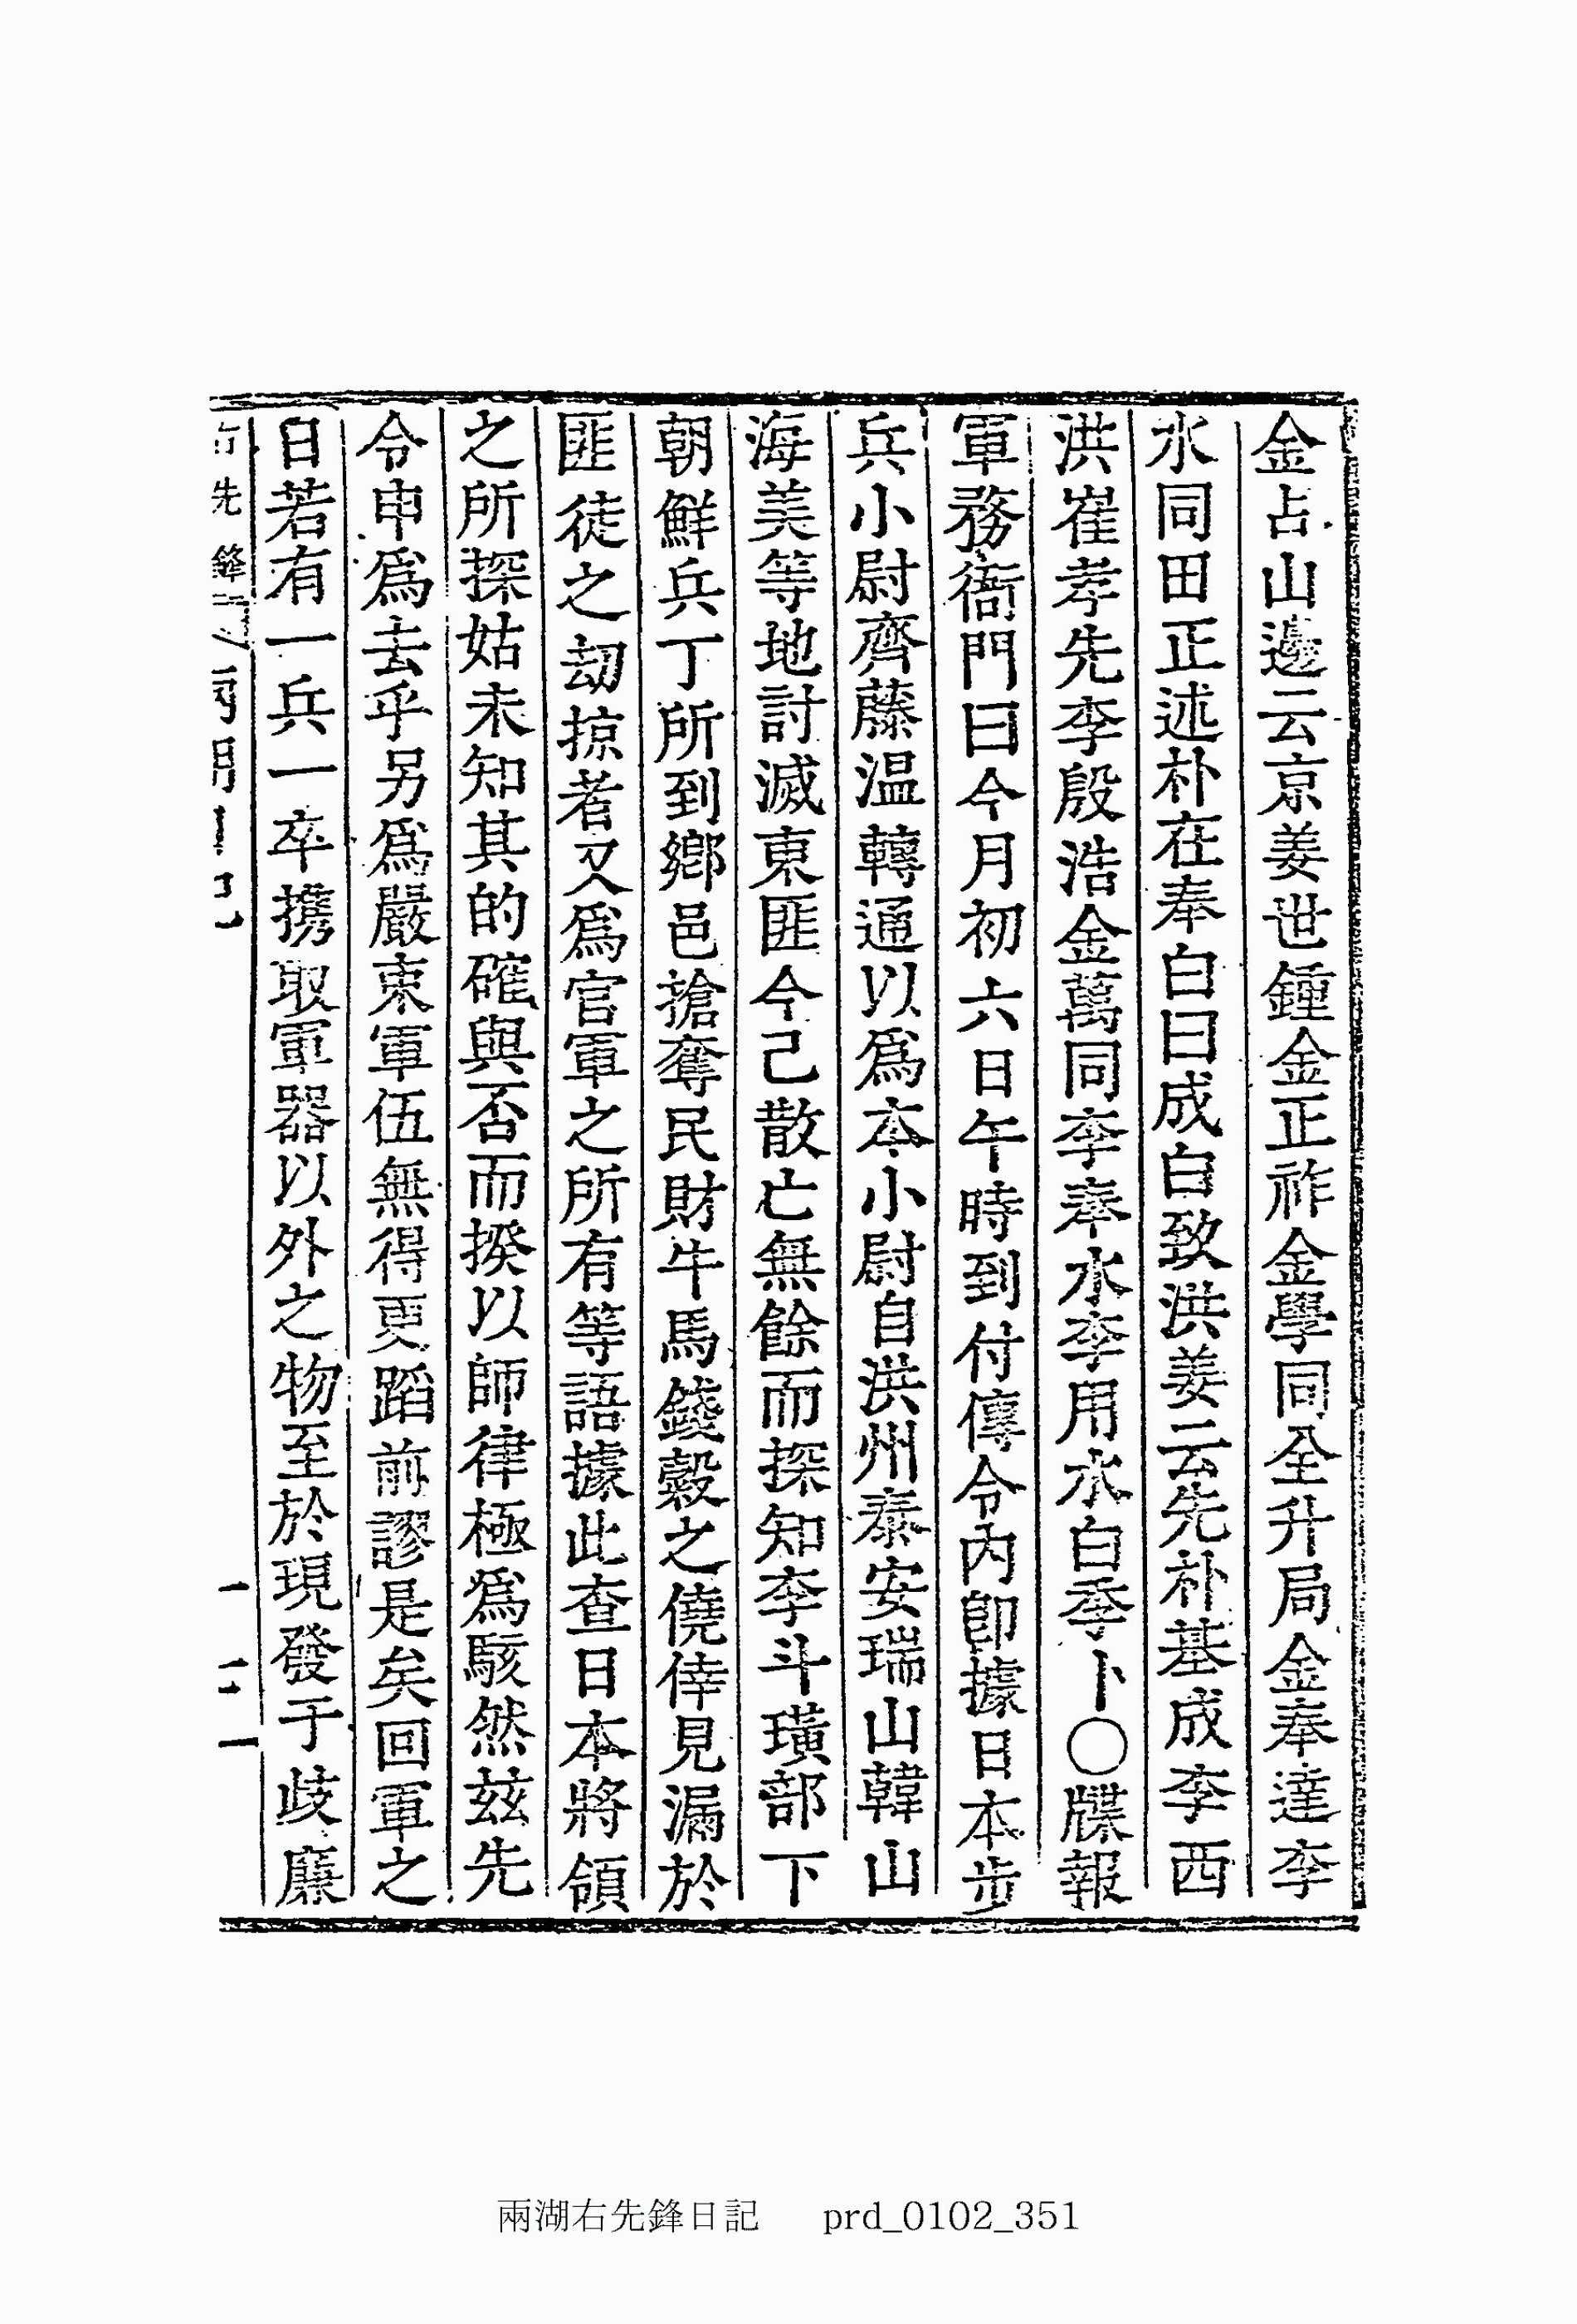 金占山邊云京姜世鍾金正祚金學同全升局金奉達李
水同田正述朴在奉白曰成白致洪姜云先朴基成李西
洪崔孝先李殷浩金萬同李奉水李用水白季卜○牒報
軍務衙門曰今月初六日午時到付傳令內卽據日本步
兵小尉齊藤温轉通以爲本小尉自洪州泰安瑞山韓山
海美等地討滅東匪今己散亡無餘而探知李斗璜部下
朝鮮兵丁所到鄉邑搶奪民財牛馬錢穀之僥倖見漏於
匪徒之刧掠者又爲官軍之所有等語據此查日本將領
之所探姑未知其的確與否而揆以師律極爲駭然玆先
令申爲去乎另爲嚴束軍伍無得更蹈前謬是矣回軍之
日若有一兵一卒攜取軍器以外之物至於現發于歧廉
右先鋒
兩湖右先鋒日記 prd_0102_351